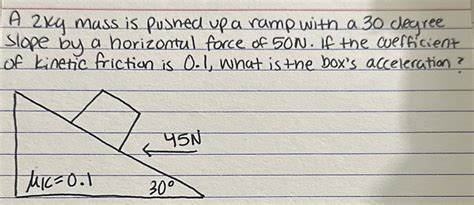 A 2kg mass is pushed up a ramp with a 30 degree
slope by a horizontal force of 50N. If the coefficient
of kinetic friction is 0.1, what is the box's acceleration?
45N
μK=0.1
30°